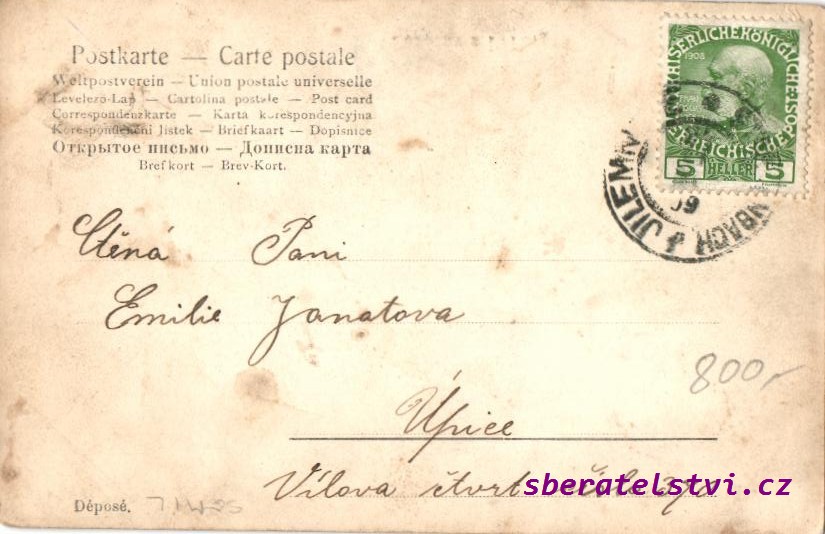 Postkarte — Carte postale
Weltpostverein — Union postale universelle
Levelező-Lap — Cartolina postale — Post card
Correspondenzkarte — Karta korespondencyjna
Korespondenční lístek — Briefkaart — Dopisnice
Открытое письмо — Дописна карта
Brefkort — Brev-Kort.
KAISERLICHE KÖNIGLICHE ÖSTERREICHISCHE POST
1908
5 HELLER 5
JILEMN
09
Ctěná Paní
Emilie Janatova
Úpice
Vílova čtvrt
sberatelstvi.cz
800,-
Déposé.